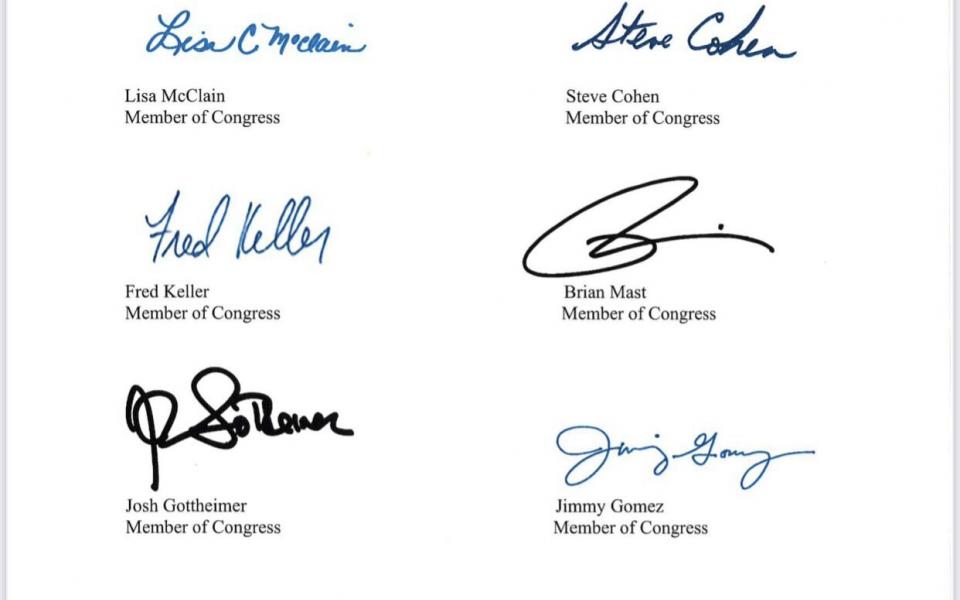 Lisa C McClain
Steve Cohen
Lisa McClain
Member of Congress
Steve Cohen
Member of Congress
Fred Keller
Fred Keller
Member of Congress
Brian Mast
Member of Congress
Gottheimer
Jimmy Gomez
Josh Gottheimer
Member of Congress
Jimmy Gomez
Member of Congress